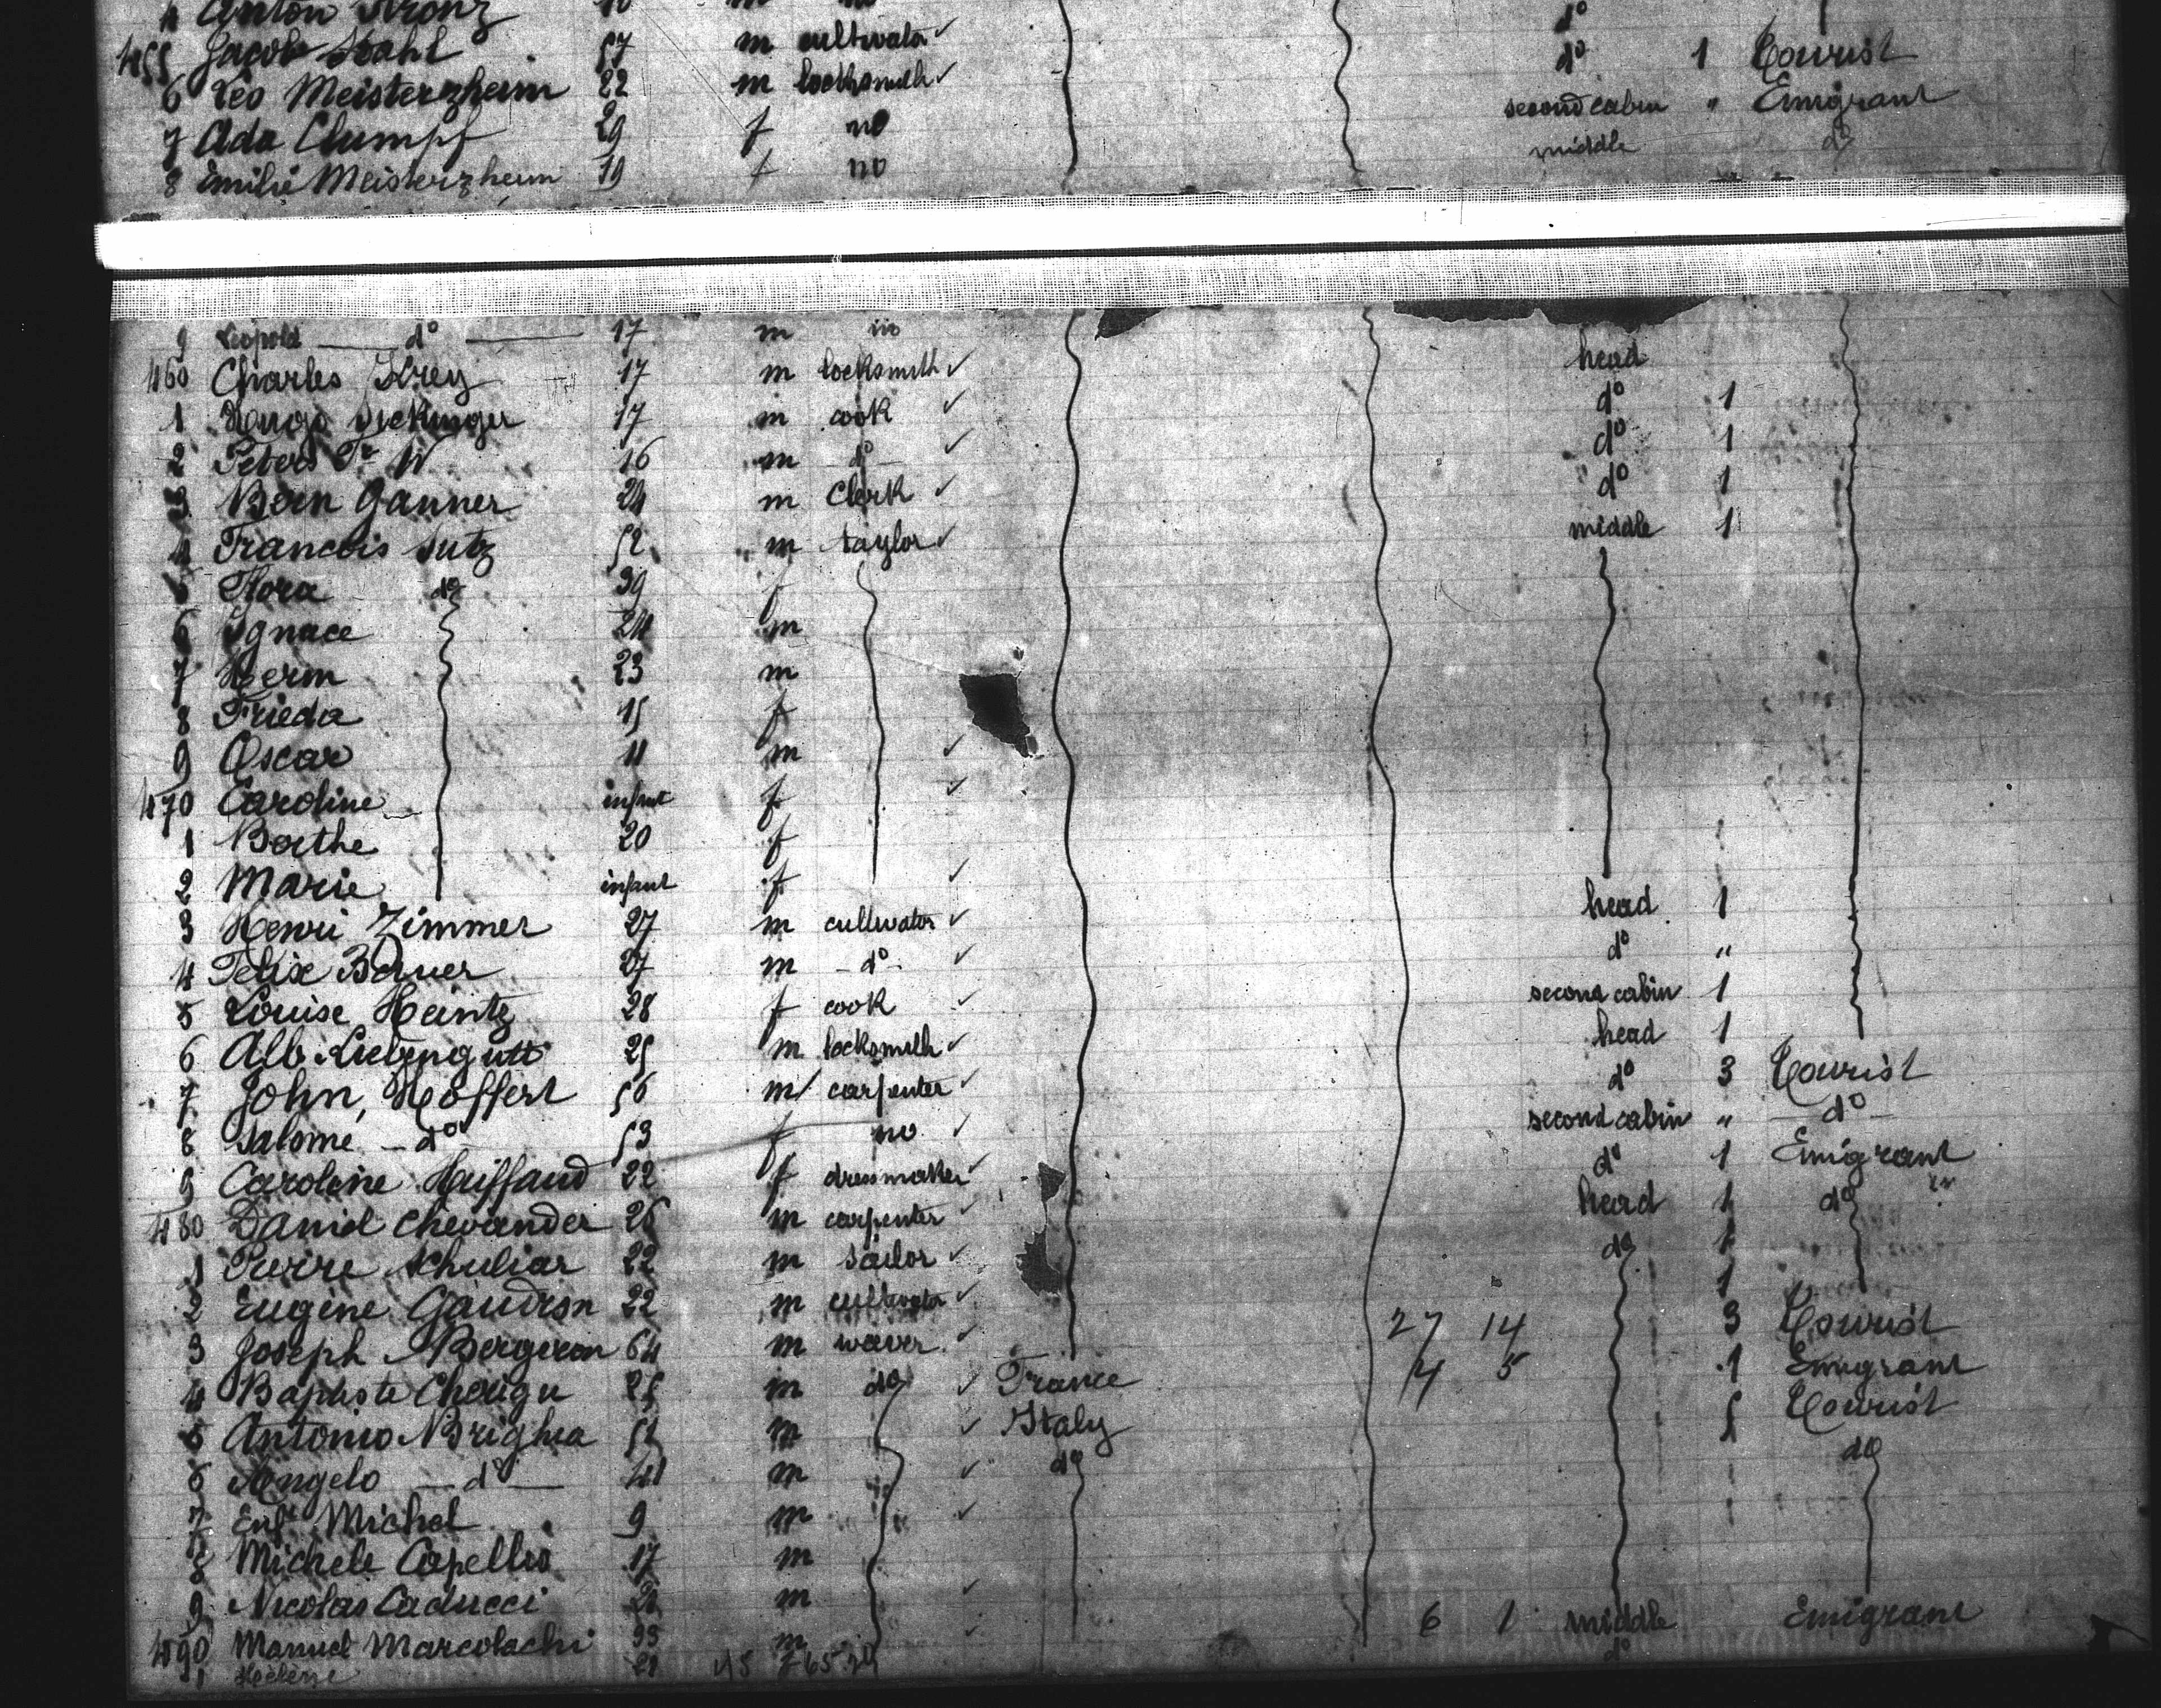 4 Anton Kronz m no do
455 Jacob Stahl 57 m cultivator ✓ do 1 Tourist
6 Leo Meisterzheim 22 m locksmith ✓ second cabin " Emigrant
7 Ada Clumpf 29 f no middle do
8 Emilie Meisterzheim 19 f no
9 Leopold do 17 m no head
460 Charles Frey 17 m locksmith ✓ do 1
1 Hugo 17 m cook ✓ do 1
2 Peters Fr W 16 m do ✓ do 1
3 Bern Ganner 24 m Clerk ✓ middle 1
4 Francois Sutz 52 m taylor ✓
5 Flora do 39 f
6 Ignace 24 m
7 Herm 23 m
8 Frieda 15 f
9 Oscar 11 m ✓
470 Caroline infant f ✓
1 Berthe 20 f
2 Marie infant f ✓ head 1
3 Henri Zimmer 27 m cultivator ✓ do "
4 Felix Bauer 27 m do ✓ second cabin 1
5 Louise Heintz 28 f cook ✓ head 1
6 Alb Liebengutt 25 m locksmith ✓ do 3 Tourist
7 John, Hoffert 56 m carpenter ✓ second cabin " do
8 Salome do 53 f no ✓ do 1 Emigrant
9 Caroline Haiffaud 22 f dressmaker ✓ head 1 do
480 Daniel Chevander 26 m carpenter ✓ do 1
1 Pierre Schuliar 22 m sailor ✓ 1
2 Eugène Gaudron 22 m cultivator ✓ 27 14 3 Tourist
3 Joseph Bergeron 64 m weaver ✓ 4 5 1 Emigrant
4 Baptiste 25 m do ✓ France 5 Tourist
5 Antonio Brighea 51 m ✓ Italy do
6 Angelo do 41 m ✓ do
7 Enft Michel 9 m ✓
8 Michele Capellis 17 m
9 Nicolas Caducci m ✓ 6 1 middle Emigrant
490 Manuel Marcolachi m ✓ do
1 Hélène 21